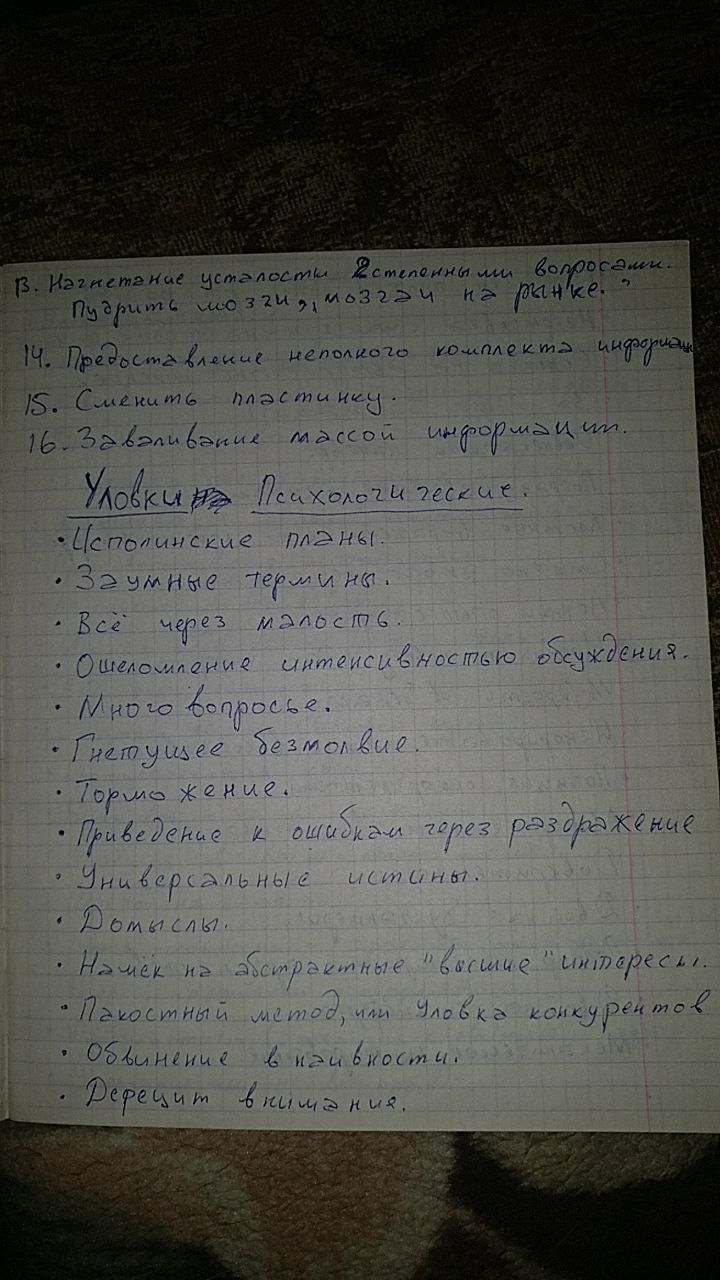 13. Нагнетание усталости 2степенными вопросами.
Пудрить мозги „мозгами на рынке."
14. Предоставление неполного комплекта информации
15. Сменить пластинку.
16. Заваливание массой информации.
Уловки Психологические.
• Исполинские планы.
• Заумные термины.
• Всё через малость.
• Ошеломление интенсивностью обсуждения.
• Много вопросье.
• Гнетущее безмолвие.
• Торможение.
• Приведение к ошибкам через раздражение
• Универсальные истины.
• Домыслы.
• Намёк на абстрактные "высшие" интересы.
• Пакостный метод, или Уловка конкурентов
• Обвинение в наивности.
• Дефецит внимания.